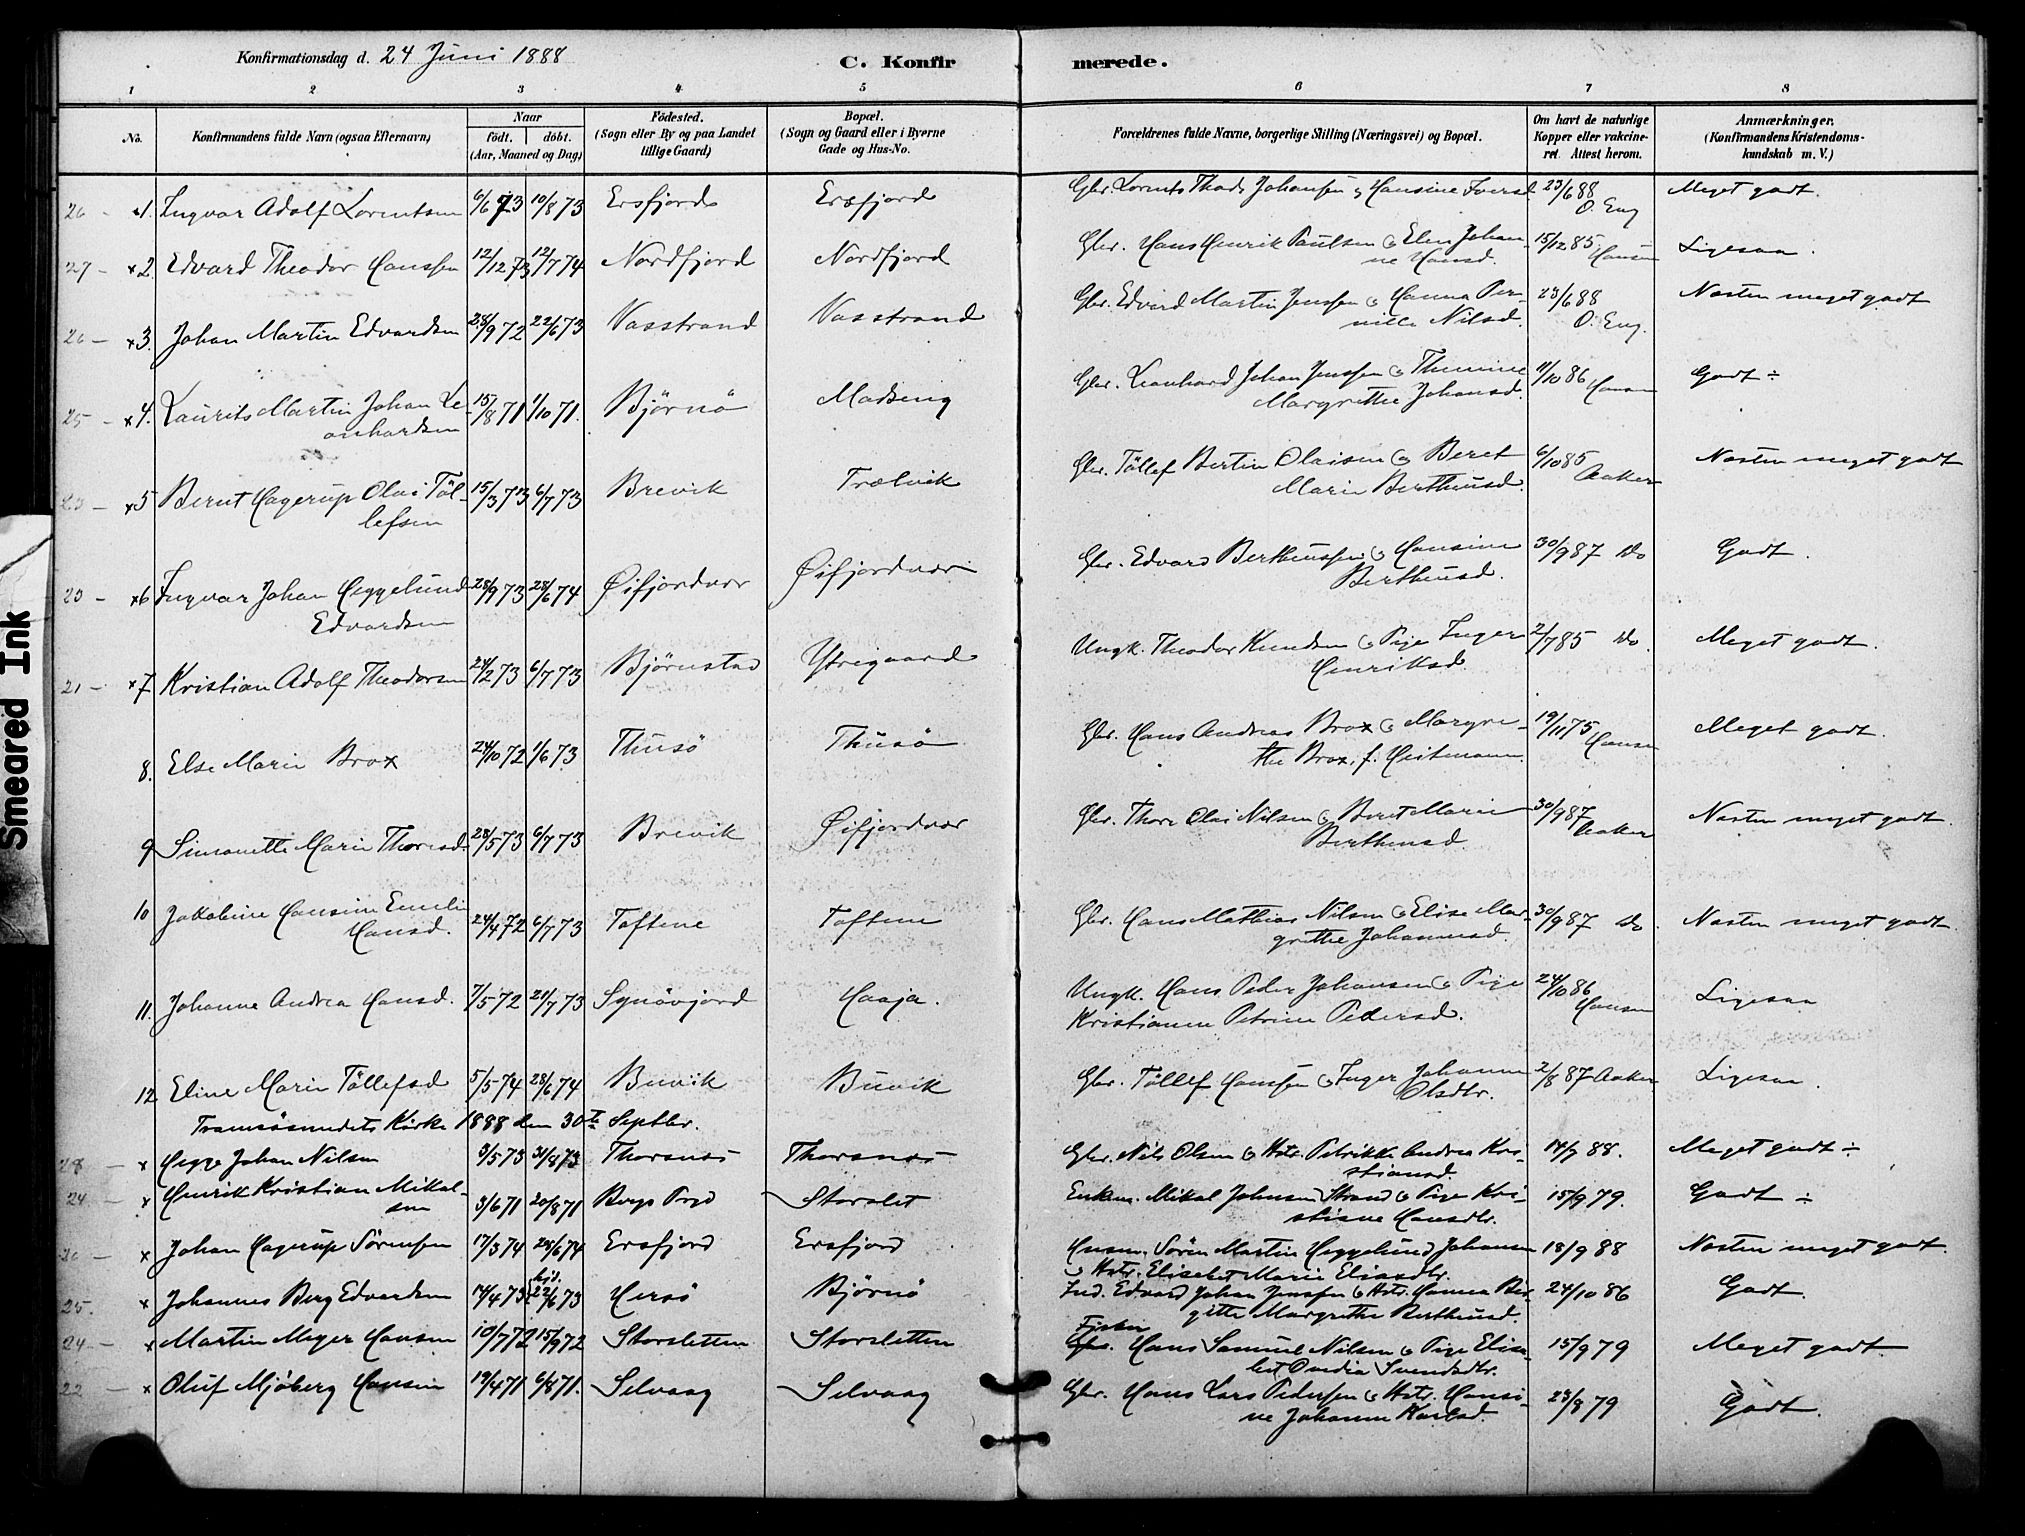 Konfirmationsdag d. 24 Juni 1888
C. Konfirmerede.
1 2 3 4 5 6 7 8
No. Konfirmandens fulde Navn (ogsaa Efternavn) Naar født. døbt. (Aar, Maaned og Dag) Födested. (Sogn eller By og paa Landet tillige Gaard) Bopæl. (Sogn og Gaard eller i Byerne Gade og Hus-No. Forældrenes fulde Navne, borgerlige Stilling (Næringsvei) og Bopæl. Om havt de naturlige Kopper eller vakcineret Attest herom. Anmærkninger. (Konfirmandens Kristendomskundskab m. V.)
26 - x1. Ingvar Adolf Lorentsen 6/6 73 10/8 73 Ersfjord Ersfjord Gbr. Lorents Johansen & Hansine Iversd 23/6 88 O. Eng Meget godt.
27 - x2. Edvard Theodor Hanssen 12/12 73 12/7 74 Nordfjord Nordfjord Gbr. Hans Henrik Paulsen & Elen Johan-
ne Hansd. 15/12 85 Hansen Ligesaa.
26 - x3. Johan Martin Edvardsen 28/9 72 22/6 73 Vasstrand Vasstrand Gbr. Edvard Martin Jenssen & Hanna Per-
nille Nilsd. 23/6 88 O. Eng. Næsten meget godt
25 - x4. Laurits Martin Johan Le-
onhardsen 15/8 71 1/10 71. Bjørnø Madseng Gbr. Leonhard Johan Jenssen & Thumine
Margrethe Johansd. 11/10 86 Hansen Godt ÷
23 - x5 Bernt Hagerup Olai Töl-
lefsen 15/3 73 6/7 73 Brevik Trælvik Gbr. Töllef Bertin Olaisen & Beret
Marie Bertheusd. 6/10 85 Aaker Næsten meget godt
23 - x6 Ingvar Johan Heggelund
Edvardsen 28/9 73 28/6 74 Øifjordvær Øifjordvær Gbr. Edvard Bertheussen & Hansine
Bertheusd. 30/9 87 Do Godt.
21 - x7 Kristian Adolf Theodorsen 24/2 73 6/7 73 Bjørnstad Ytregaard Ungk. Theodor Knudsen & Pige Inger
Henriksd. 2/7 85 Do. Meget godt.
8. Else Marie Brox 24/10 72 1/6 73 Thusö Thusö Gbr. Hans Andreas Brox & Margre-
the Brox, f. Heitmann. 19/11 75 Hansen Meget godt.
9 Simonette Marie Thoresd. 28/5 73 6/7 73 Brevik Øifjordvær Gbr. Thore Olai Nilsen & Beret Marie
Bertheusd. 30/9 87 Aaker Næsten meget godt.
10 Jakobine Hansine Emelie
Hansd. 24/4 72 6/7 73 Toftene Toftene Gbr. Hans Mathias Nilsen & Elise Mar-
grethe Johannesd. 30/9 87 Do. Næsten meget godt
11. Johanne Andrea Hansd. 7/5 72 21/7 73 Haaja. Ungk. Hans Peder Johansen & Pige
Kristianne Petrine Pedersd. 24/10 86 Hansen Ligesaa
12 Eline Marie Töllefsd 5/5 74 28/6 74 Buvik Buvik Gbr. Töllef Hanssen & Inger Johanne
Olsdtr. 2/8 87 Aaker Ligesaa.
Tromsøsundets Kirke 1888 den 30te Septbr.
28 - x Hegge Johan Nilsen 3/5 73 31/8 73 Thorsnes Thorsnes Gbr. Nils Olsen & Hstr. Petrikke Andrea Kri-
stiansd. 14/9 88. Meget godt ÷
24 - x Henrik Kristian Mikal-
sen 3/6 71 20/8 71 Bergs Prgd Storslet Enkem. Mikal Johnsen Strand & Pige Kri-
stiane Hansdtr. 15/9 79. Godt ÷
26 - x Johan Hagerup Sörensen 17/3 74 28/6 74 Ersfjord Ersfjord Husm. Sören Martin Heggelund Johansen
& Hstr. Elisebet Marie Eliasdtr. 18/9 88 Næsten meget godt.
25. x Johannes Berg Edvardsen 14/4 73 hjd. 22/6 73 Hersö Bjørnø Ind. Edvard Johan Jenssen & Hstr. Hanna Bir-
gitte Margrethe Bertheusd. 24/10 86 Godt.
24 - x Martin Meyer Hansen 10/7 72 15/9 72 Storsletten Storsletten Fisker Hans Samuel Nilsen & Pige Elise-
bet Ovedia Svendsdtr. 15/9 79 Meget godt.
22 - x Oluf Mjöberg Hansen 19/4 71 6/8 71. Selvaag Selvaag Gbr. Hans Lars Pedersen & Hstr. Hansi-
ne Johanne Karlsd. 23/8 79 Godt.
Smeared Ink